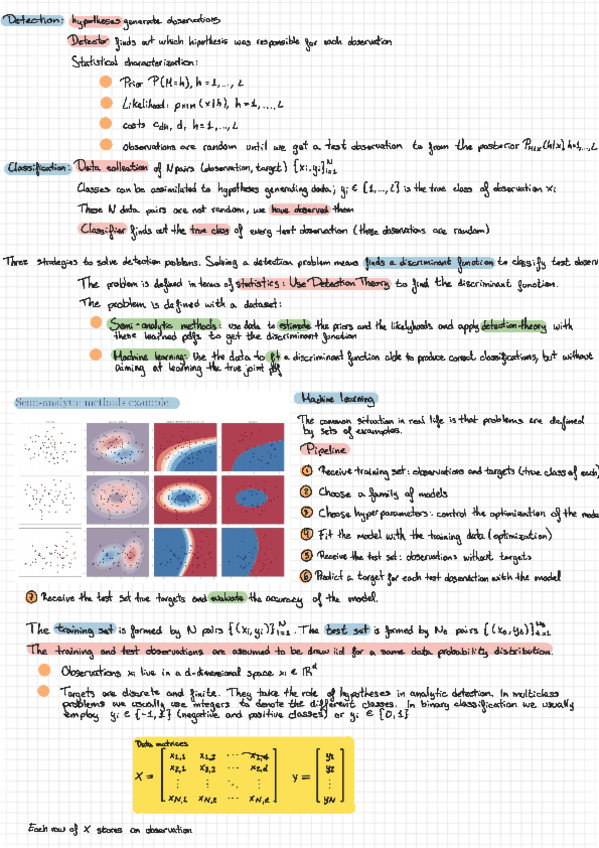 Detection: hypotheses generate observations
Detector finds out which hipothesis was responsible for each observation
Statistical characterization:
Prior P(H=h), h=1,..., L
Likelihood: pX|H (x|h), h=1,...., L
costs cdh, d, h=1,..., L
observations are random until we get a test observation to form the posterior PH|X (h|x) h=1,...,L
Classification: Data collection of N pairs (observation, target) {xi, yi}ᴺi=1
Classes can be assimilated to hypotheses generating data; yi ∈ {1,...,L} is the true class of observation xi
These N data pairs are not random, we have observed them
Classifier finds out the true class of every test observation (those observations are random)
Three strategies to solve detection problems. Solving a detection problem means finds a discriminant function to classify test observ
The problem is defined in terms of statistics: Use Detection Theory to find the discriminant function.
The problem is defined with a dataset:
Semi-analytic methods: use data to estimate the priors and the likelyhoods and apply detection theory with
these learned pdfs to get the discriminant function
Machine learning: Use the data to fit a discriminant function able to produce correct classifications, but without
aiming at learning the true joint pdf
Semi-analytic methods example
Machine learning
The common situation in real life is that problems are defined
by sets of examples.
Pipeline
1 Receive training set: observations and targets (true class of each)
2 Choose a family of models
3 Choose hyperparameters: control the optimization of the mode
4 Fit the model with the training data (optimization)
5 Receive the test set: observations without targets
6 Predict a target for each test observation with the model
7 Receive the test set true targets and evaluate the accuracy of the model.
The training set is formed by N pairs {(xi, yi)}ᴺi=1. The test set is formed by
The training and test observations are assumed to be draw iid for a same data probability distribution.
Observations xi live in a d-dimensional space xi ∈ ℝᵈ
Targets are discrete and finite. They take the role of hypotheses in analytic detection. In multiclass
problems we usually use integers to denote the different classes. In binary classification we usually
employ yi ∈ {-1, 1} (negative and positive classes) or yi ∈ {0,1}
Data matrices
x1,1 x1,2 ... x1,d y1
x2,1 x2,2 ... x2,d y2
X = ⋮ ⋮ ⋱ ⋮ y = ⋮
xN,1 xN,2 ... xN,d yN
Each row of X stores an observation